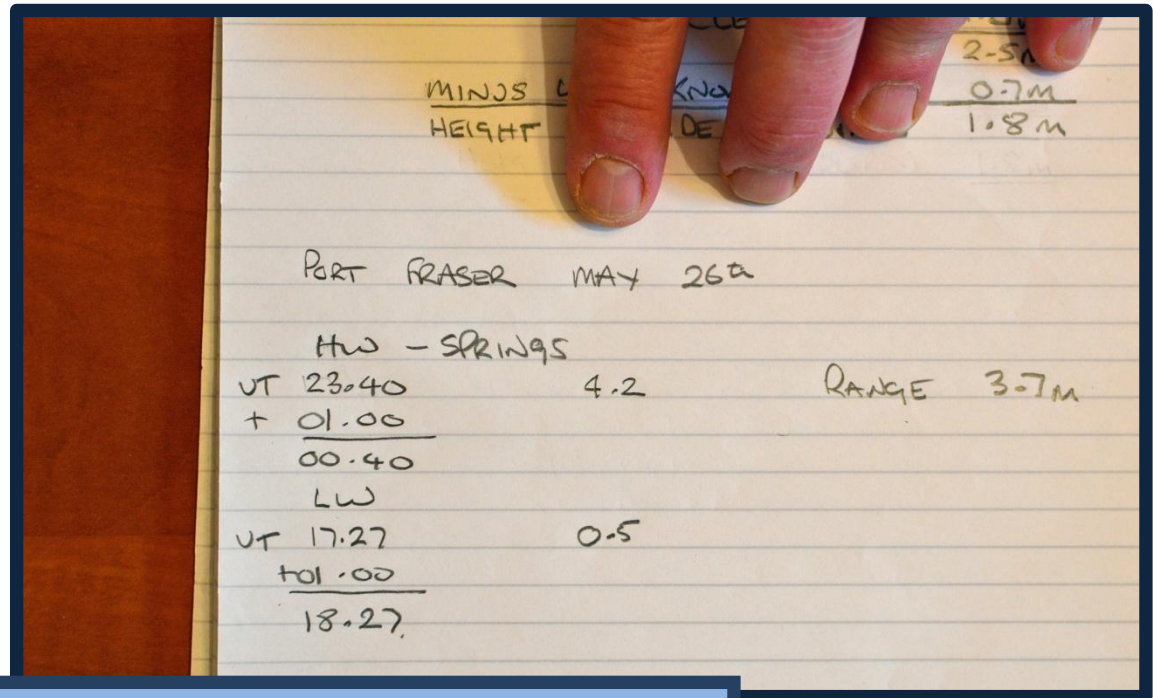 2.5M
MINUS 0.7M
HEIGHT 1.8M
PORT FRASER MAY 26th
HW - SPRINGS
UT 23.40 4.2 RANGE 3.7M
+ 01.00
00.40
LW
UT 17.27 0.5
+01.00
18.27.